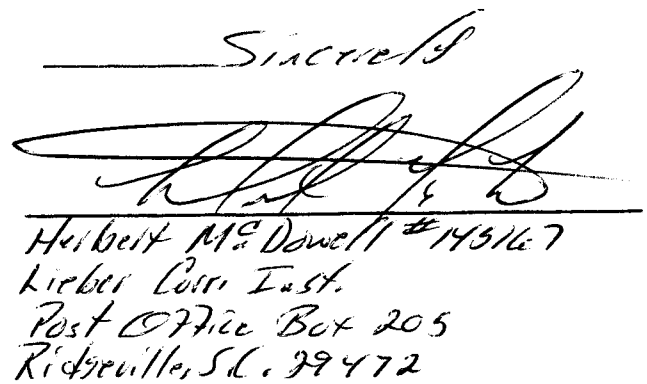 Sincerely
Herbert McDowell #145767
Lieber Corr. Inst.
Post Office Box 205
Ridgeville, S.C. 29472